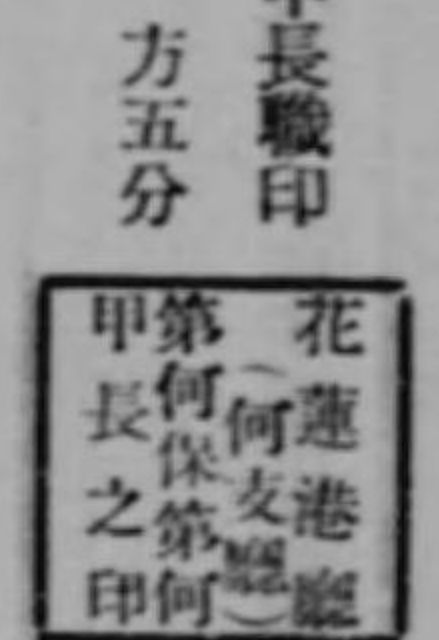 長職印
方五分
花蓮港廳
（何支廳）
第何保第何
甲長之印